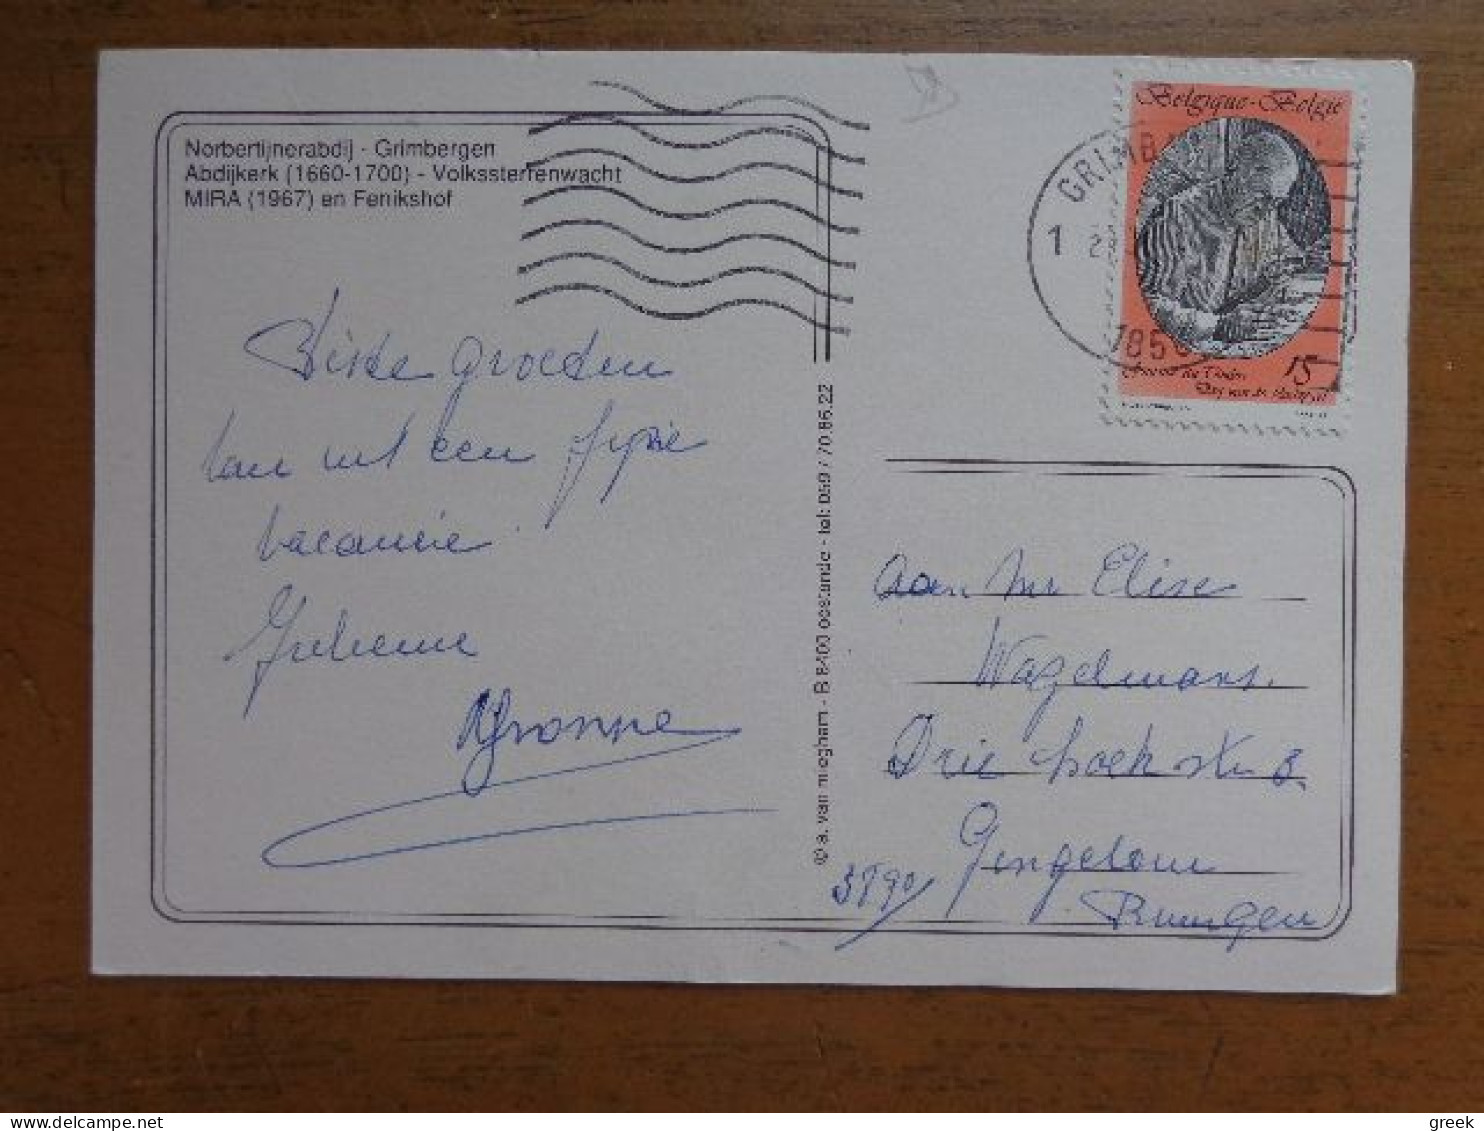 Norbertijnerabdij - Grimbergen
Abdijkerk (1660-1700) - Volkssterrenwacht
MIRA (1967) en Fenikshof
groeten
van uit een fijne
vacancie
Julienne
Yvonne
© a. van mieghem - B 8400 oostende - tel: 059 / 70.86.22
Belgique-België
GRIMB
1
1850
15
Aan Mr Elise
Wagelmans.
Driehoekstr 3.
3890 Gingelom
delcampe.net
greek